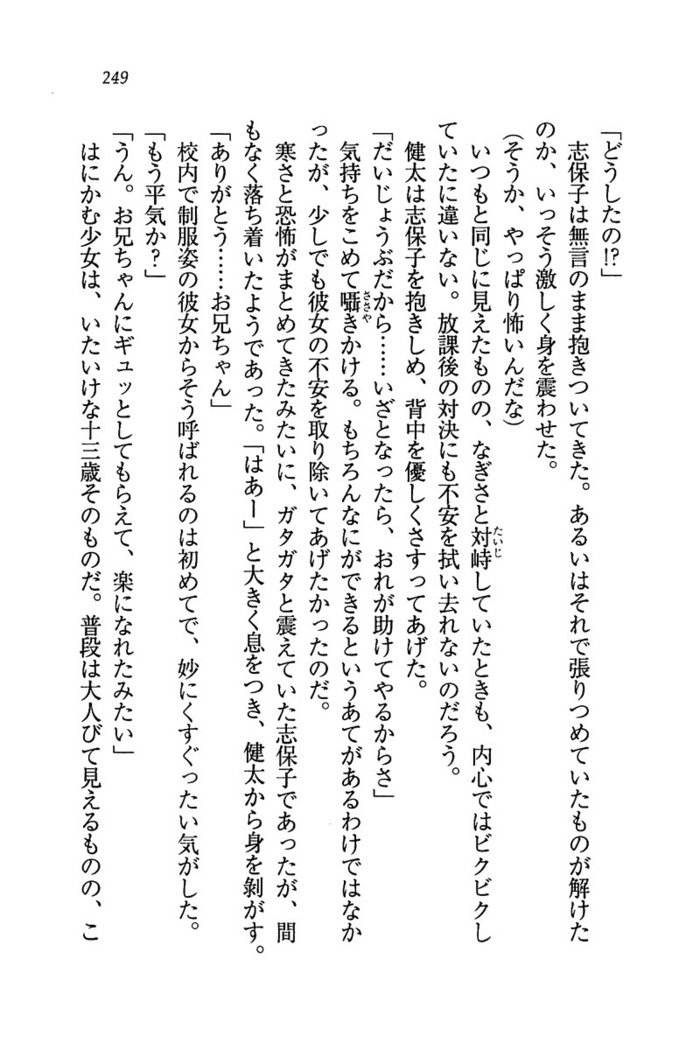 249
「どうしたの!?」
　志保子は無言のまま抱きついてきた。あるいはそれで張りつめていたものが解けた
のか、いっそう激しく身を震わせた。
（そうか、やっぱり怖いんだな）
　いつもと同じに見えたものの、なぎさと対峙していたときも、内心ではビクビクし
たいじ
ていたに違いない。放課後の対決にも不安を拭い去れないのだろう。
　健太は志保子を抱きしめ、背中を優しくさすってあげた。
「だいじょうぶだから……いざとなったら、おれが助けてやるからさ」
　気持ちをこめて囁きかける。もちろんなにができるというあてがあるわけではなか
ささや
ったが、少しでも彼女の不安を取り除いてあげたかったのだ。
　寒さと恐怖がまとめてきたみたいに、ガタガタと震えていた志保子であったが、間
もなく落ち着いたようであった。「はあー」と大きく息をつき、健太から身を剝がす。
「ありがとう……お兄ちゃん」
　校内で制服姿の彼女からそう呼ばれるのは初めてで、妙にくすぐったい気がした。
「もう平気か？」
「うん。お兄ちゃんにギュッとしてもらえて、楽になれたみたい」
　はにかむ少女は、いたいけな十三歳そのものだ。普段は大人びて見えるものの、こ